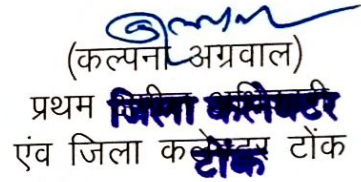 (कल्पना अग्रवाल)
प्रथम जिला कलेक्टर
एंव जिला कलेक्टर टोंक
टोंक